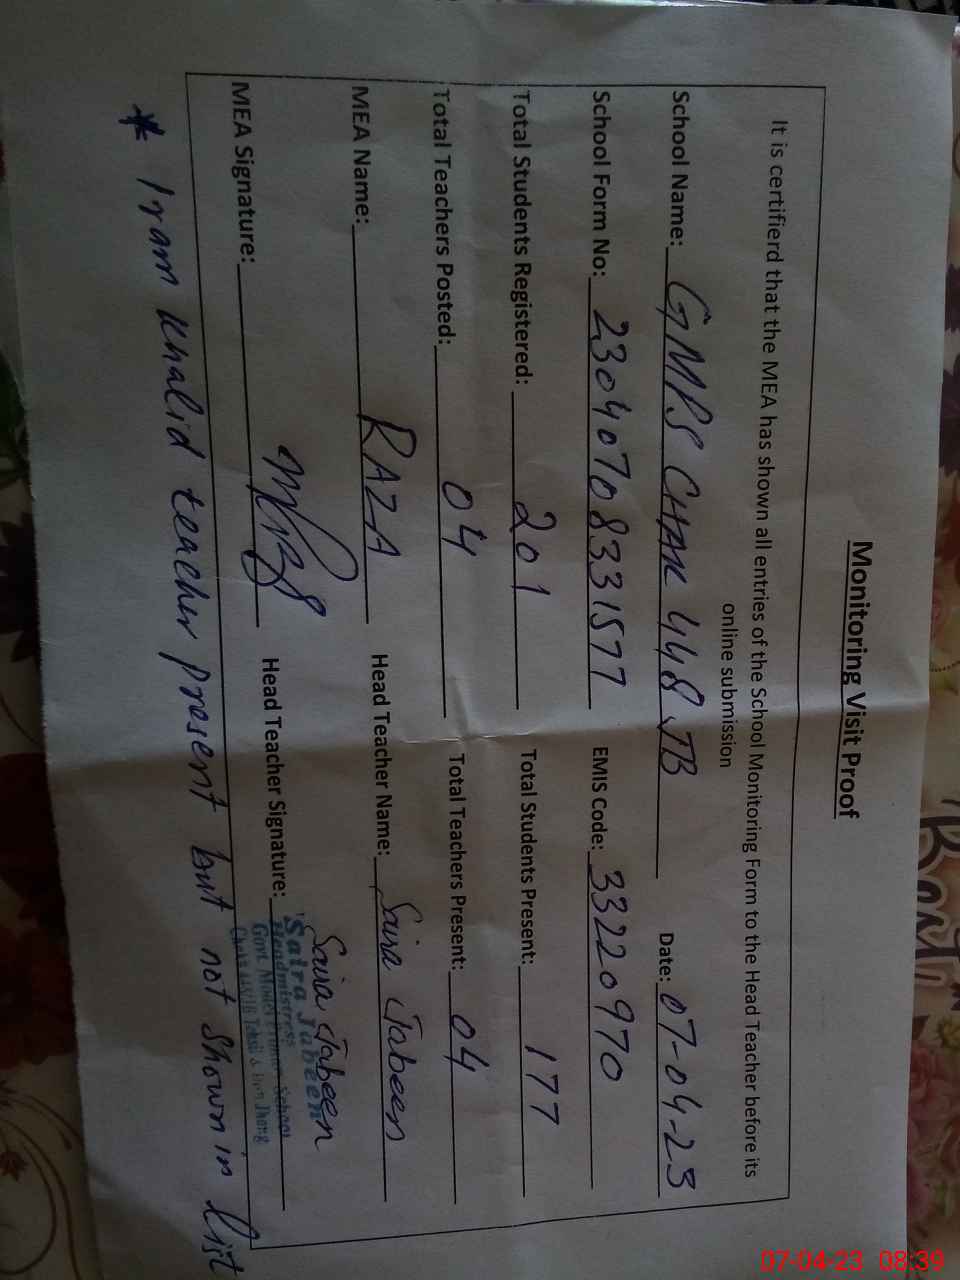 Monitoring Visit Proof
It is certifierd that the MEA has shown all entries of the School Monitoring Form to the Head Teacher before its
online submission
School Name: GMPS CHAK 448 JB Date: 07-04-23
School Form No: 23040708331577 EMIS Code: 33220970
Total Students Registered: 201 Total Students Present: 177
Total Teachers Posted: 04 Total Teachers Present: 04
MEA Name: RAZA Head Teacher Name: Saira Jabeen
MEA Signature: Head Teacher Signature: Saira Jabeen
Saira Jabeen
Headmistress
Govt. Primary School
Tehsil & Jhang
* Iram Khalid teacher present but not shown in list
07-04-23 08:39